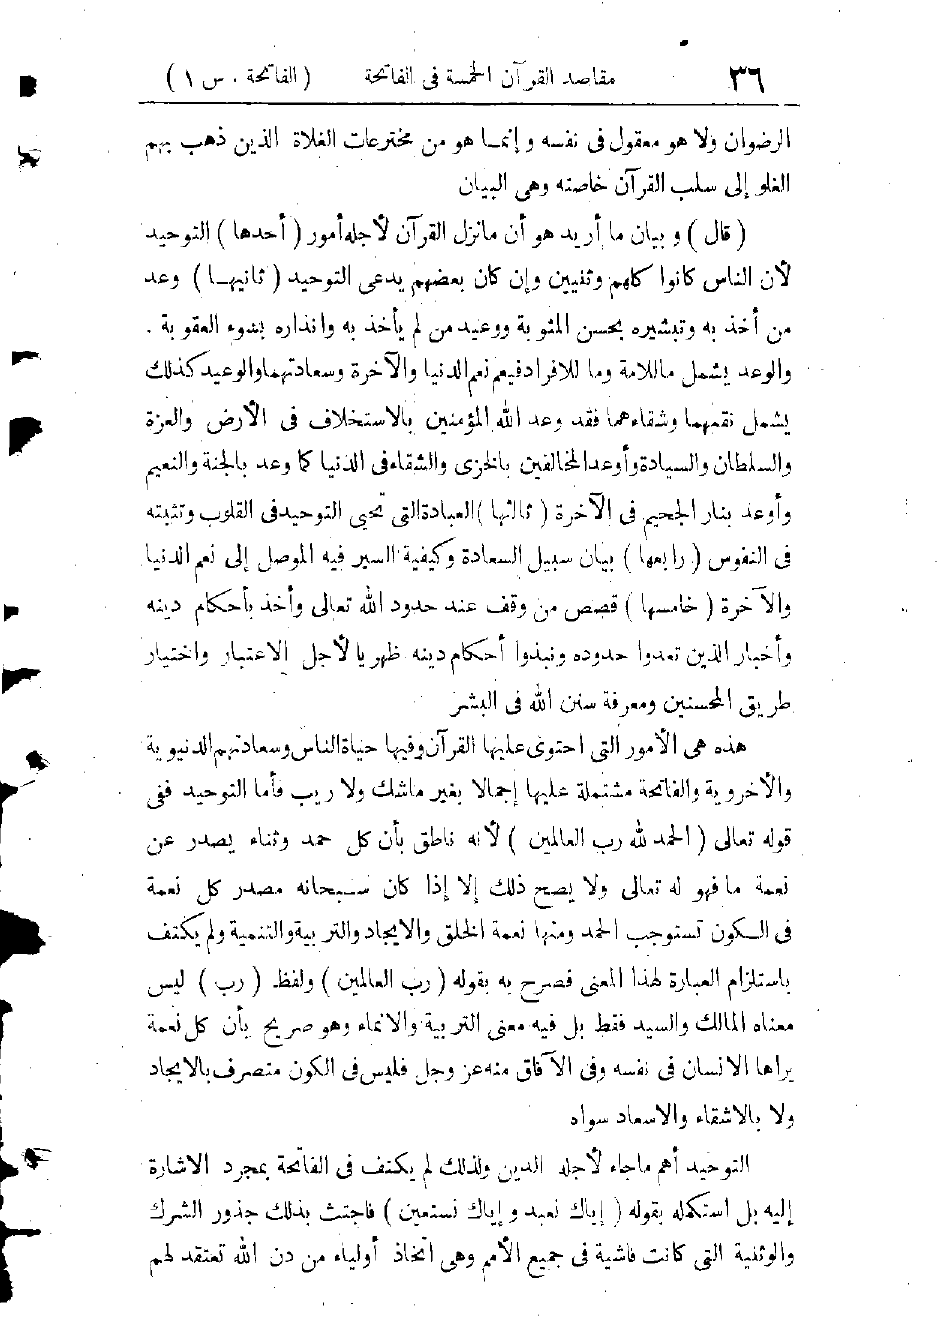 ٣٦ مقاصد القرآن الخمسة فى الفاتحة ( الفاتحة . س ١ )
الرضوان ولا هو معقول فى نفسه و إنمـا هو من مخترعات الغلاة الذين ذهب بهم
الغلو إلى سلب القرآن خاصته وهى البيان
( قال ) و بيان ما أريد هو أن مانزل القرآن لأجله أمور ( أحدها ) التوحيد
لأن الناس كانوا كلهم وثنيين وإن كان بعضهم يدعى التوحيد ( ثانيهـا ) وعد
من أخذ به وتبشيره بحسن المثوبة ووعيد من لم يأخذ به وانذاره بسوء العقوبة .
والوعد يشمل ماللامة وما للافراد فيعم نعم الدنيا والآخرة وسعادتهما والوعيد كذلك
يشمل نقمهما وشقاءهما فقد وعد الله المؤمنين بالاستخلاف فى الأرض والعزة
والسلطان والسيادة وأوعد المخالفين بالخزى والشقاء فى الدنيا كما وعد بالجنة والنعيم
وأوعد بنار الجحيم فى الآخرة ( ثالثها ) العبادة التى تحيى التوحيد فى القلوب وتثبته
فى النفوس ( رابعها ) بيان سبيل السعادة وكيفية السير فيه الموصل إلى نعم الدنيا
والآخرة ( خامسها ) قصص من وقف عند حدود الله تعالى وأخذ بأحكام دينه
وأخبار الذين تعدوا حدوده ونبذوا أحكام دينه ظهريا لأجل الاعتبار واختيار
طريق المحسنين ومعرفة سنن الله فى البشر
هذه هى الأمور التى احتوى عليها القرآن وفيها حياة الناس وسعادتهم الدنيوية
والأخروية والفاتحة مشتملة عليها إجمالا بغير ماشك ولا ريب فأما التوحيد ففى
قوله تعالى ( الحمد لله رب العالمين ) لأنه ناطق بأن كل حمد وثناء يصدر عن
نعمة ما فهو له تعالى ولا يصح ذلك إلا إذا كان سـبحانه مصدر كل نعمة
فى الـكون تستوجب الحمد ومنها نعمة الخلق والايجاد والتربية والتنمية ولم يكتف
باستلزام العبارة لهذا المعنى فصرح به بقوله ( رب العالمين ) ولفظ ( رب ) ليس
معناه المالك والسيد فقط بل فيه معنى التربية والانماء وهو صريح بأن كل نعمة
يراها الانسان فى نفسه وفى الآفاق منه عز وجل فليس فى الكون متصرف بالايجاد
ولا بالاشقاء والاسعاد سواه
التوحيد أهم ماجاء لأجله الدين ولذلك لم يكتف فى الفاتحة بمجرد الاشارة
إليه بل استكمله بقوله ( إياك نعبد و إياك نستعين ) فاجتث بذلك جذور الشرك
والوثنية التى كانت فاشية فى جميع الأمم وهى اتخاذ أولياء من دن الله تعتقد لهم